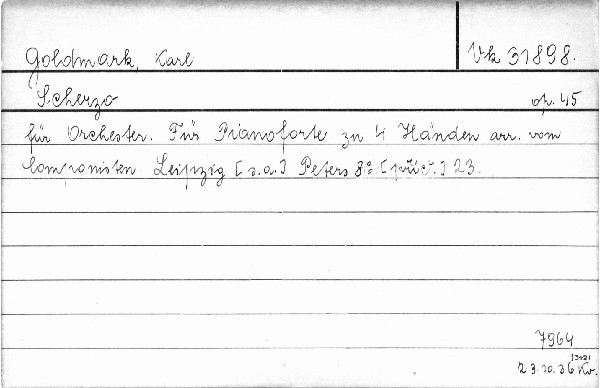 Goldmark, Karl
Vk 31898.
Scherzo
op. 45
für Orchester. Für Pianoforte zu 4 Händen arr. vom
Componisten. Leipzig [s.a.] Peters 8° [příč.] 23.
7964
23.10.36 Kv.